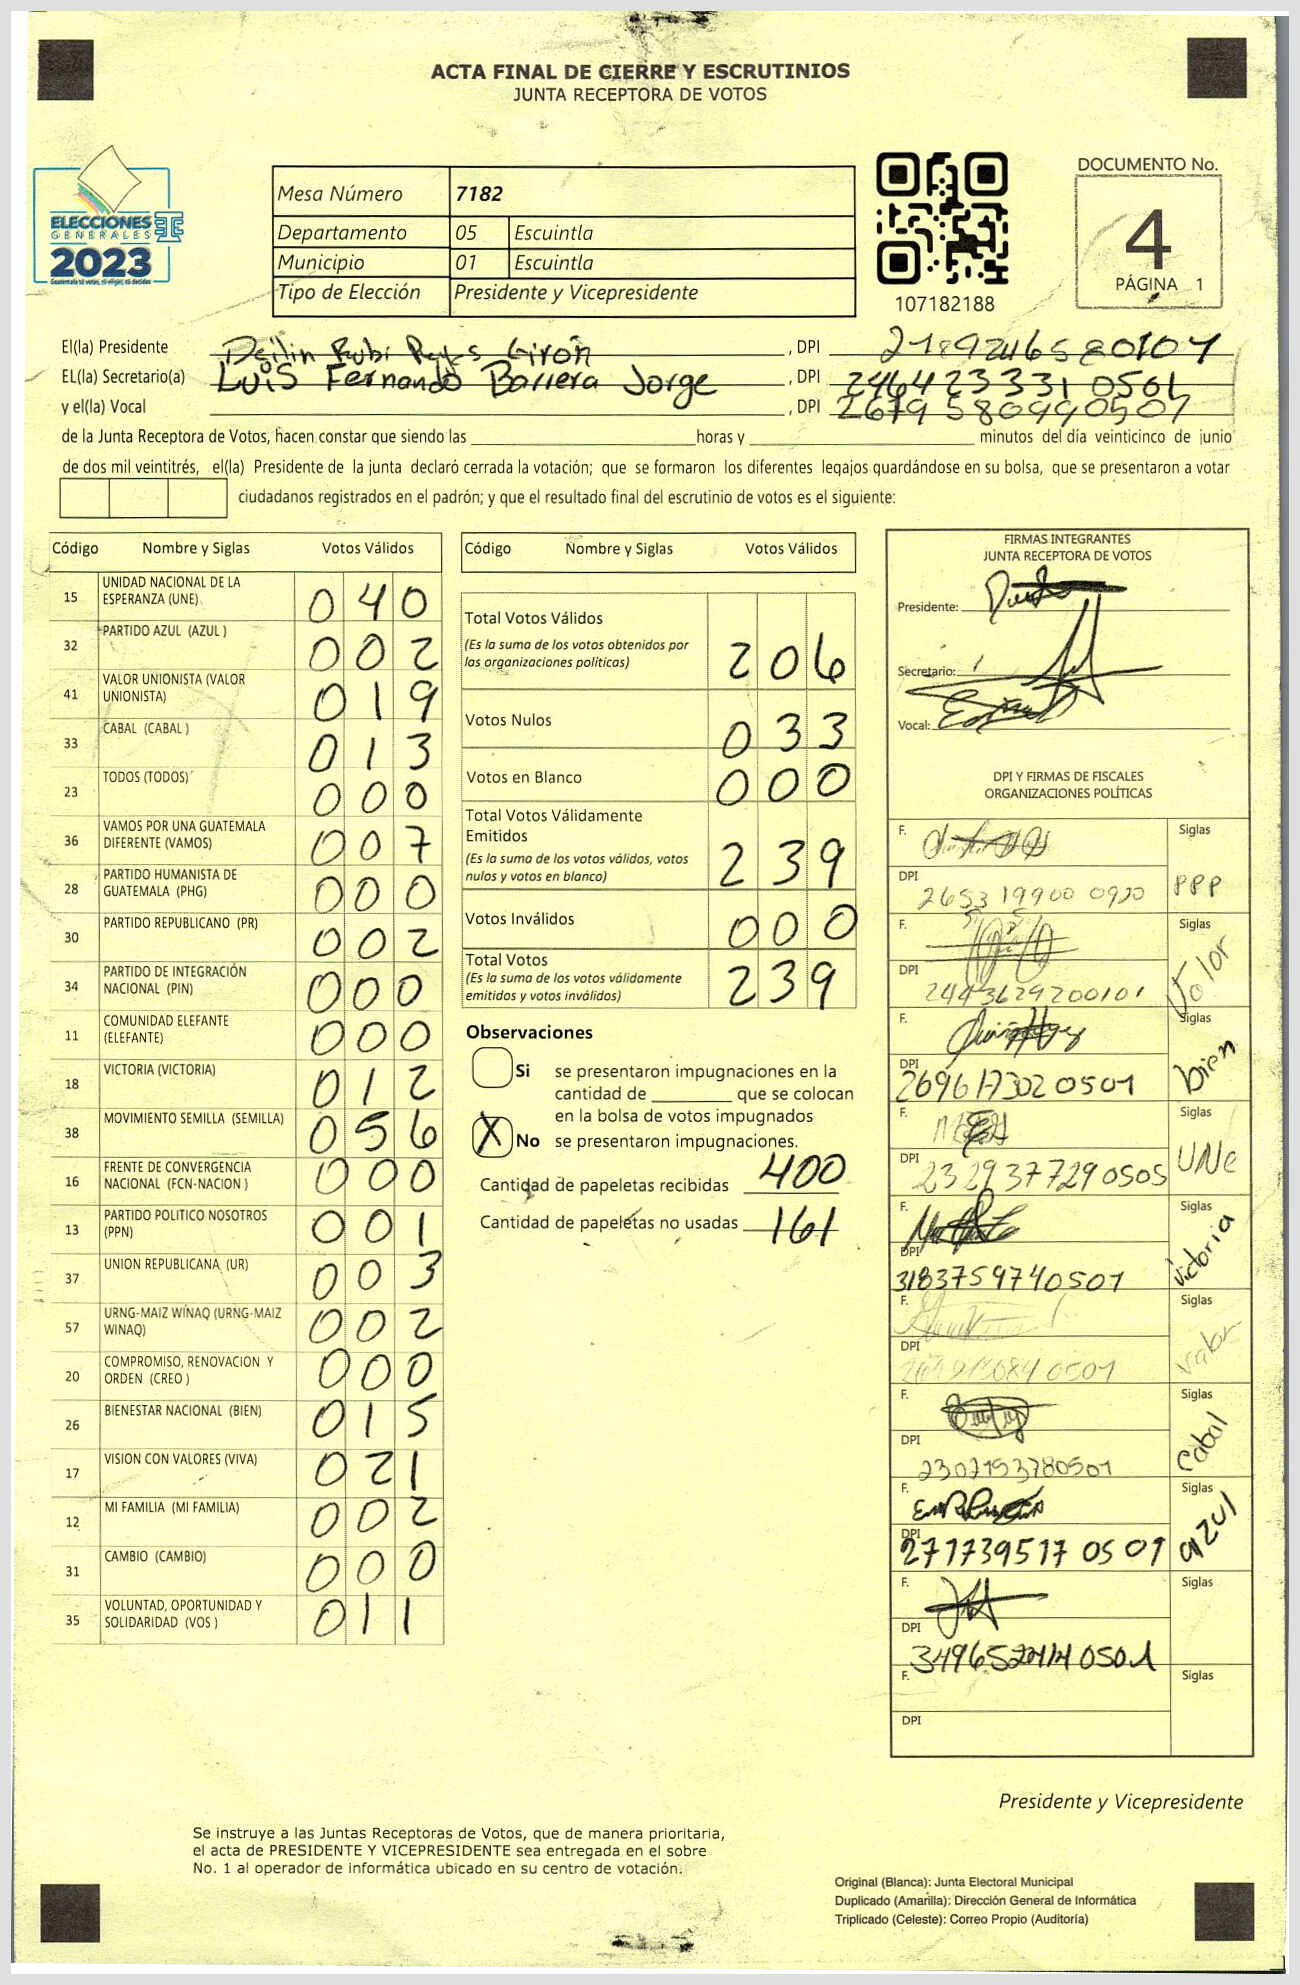 ACTA FINAL DE CIERRE Y ESCRUTINIOS
JUNTA RECEPTORA DE VOTOS
ELECCIONES
GENERALES
2023
Mesa Número 7182
Departamento 05 Escuintla
Municipio 01 Escuintla
Tipo de Elección Presidente y Vicepresidente
107182188
DOCUMENTO No.
4
PÁGINA 1
El(la) Presidente Rubi Girón , DPI
EL(la) Secretario(a) Luis Fernando Barrera Jorge , DPI 2464233310501
y el(la) Vocal , DPI
de la Junta Receptora de Votos, hacen constar que siendo las horas y minutos del día veinticinco de junio
de dos mil veintitrés, el(la) Presidente de la junta declaró cerrada la votación; que se formaron los diferentes legajos guardándose en su bolsa, que se presentaron a votar
ciudadanos registrados en el padrón; y que el resultado final del escrutinio de votos es el siguiente:
Código Nombre y Siglas Votos Válidos
15 UNIDAD NACIONAL DE LA ESPERANZA (UNE) 040
32 PARTIDO AZUL (AZUL ) 002
41 VALOR UNIONISTA (VALOR UNIONISTA) 019
33 CABAL (CABAL ) 013
23 TODOS (TODOS) 000
36 VAMOS POR UNA GUATEMALA DIFERENTE (VAMOS) 007
28 PARTIDO HUMANISTA DE GUATEMALA (PHG) 000
30 PARTIDO REPUBLICANO (PR) 002
34 PARTIDO DE INTEGRACIÓN NACIONAL (PIN) 000
11 COMUNIDAD ELEFANTE (ELEFANTE) 000
18 VICTORIA (VICTORIA) 012
38 MOVIMIENTO SEMILLA (SEMILLA) 056
16 FRENTE DE CONVERGENCIA NACIONAL (FCN-NACION ) 000
13 PARTIDO POLITICO NOSOTROS (PPN) 001
37 UNION REPUBLICANA (UR) 003
57 URNG-MAIZ WINAQ (URNG-MAIZ WINAQ) 002
20 COMPROMISO, RENOVACION Y ORDEN (CREO ) 000
26 BIENESTAR NACIONAL (BIEN) 015
17 VISION CON VALORES (VIVA) 021
12 MI FAMILIA (MI FAMILIA) 002
31 CAMBIO (CAMBIO) 000
35 VOLUNTAD, OPORTUNIDAD Y SOLIDARIDAD (VOS ) 011
Código Nombre y Siglas Votos Válidos
Total Votos Válidos 206
(Es la suma de los votos obtenidos por
las organizaciones políticas)
Votos Nulos 033
Votos en Blanco 000
Total Votos Válidamente
Emitidos 239
(Es la suma de los votos válidos, votos
nulos y votos en blanco)
Votos Inválidos 000
Total Votos 239
(Es la suma de los votos válidamente
emitidos y votos inválidos)
Observaciones
Si se presentaron impugnaciones en la
cantidad de que se colocan
en la bolsa de votos impugnados
X No se presentaron impugnaciones.
Cantidad de papeletas recibidas 400
Cantidad de papeletas no usadas 161
FIRMAS INTEGRANTES
JUNTA RECEPTORA DE VOTOS
Presidente:
Secretario:
Vocal:
DPI Y FIRMAS DE FISCALES
ORGANIZACIONES POLÍTICAS
F. Siglas
DPI 2653 19900 0920 PPP
F. Siglas
DPI 2443629200101 Valor
F. Siglas
DPI 2696173020501 bien
F. Siglas
DPI 2329377290505 UNe
F. Siglas
DPI 3183759740501 Victoria
F. Siglas
DPI valor
F. Siglas
DPI 2302153780501 Cabal
F. Siglas
DPI 2717395170501 azul
F. Siglas
DPI
F. Siglas
DPI
Presidente y Vicepresidente
Se instruye a las Juntas Receptoras de Votos, que de manera prioritaria,
el acta de PRESIDENTE Y VICEPRESIDENTE sea entregada en el sobre
No. 1 al operador de informática ubicado en su centro de votación.
Original (Blanca): Junta Electoral Municipal
Duplicado (Amarilla): Dirección General de Informática
Triplicado (Celeste): Correo Propio (Auditoría)